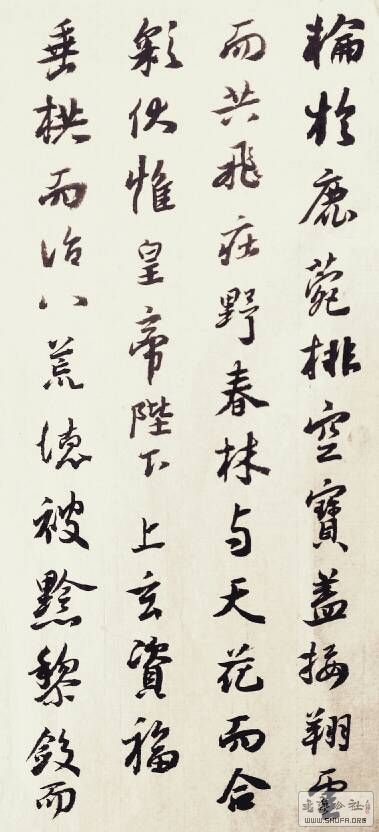 輪於鹿菀排空寶盖接翔雲
而共飛莊野春林与天花而合
彩伏惟皇帝陛下上玄資福
垂栱而治八荒德被黔黎斂而
WWW.SHUFA.ORG